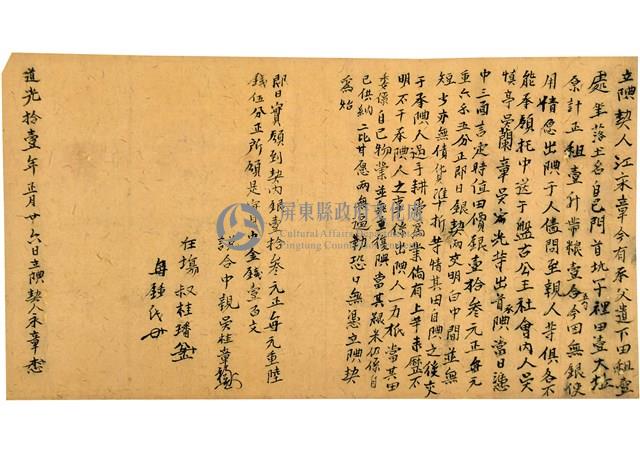 立典契人江永章今有承父遺下田租壹
處坐落土名自己門首坑子裡田壹大坵
原計正租壹斗帶粮壹合今因無銀使
用情愿出典于人儘問至親人等俱各不
能承領托中送于盤古公王社會內人吳
慎亭吳蘭章吳 光等出首承典當日憑
中三面言定時值田價銀壹拾叁元正每元
重六錢五分正即日銀契兩交明白中間並無
短少亦無債貨準折等情其田自典之後交
于承典人過手耕 為業倘有上手來歷不
明不干承典人之事係出典人一力抵當其田
委係自己物業並無重復典當其粮米仍係自
己供納二比甘愿兩無逼勒恐口無憑立典契
為始
即日實領到契內銀壹拾叁元正每元重陸
錢伍分正所領是實 金錢壹百文
說合中親吳桂章
在場叔桂璠
母鍾氏
道光拾壹年正月廿六日立典契人永章
屏東縣政府文化處
Cultural Affairs Department
Pingtung County Government